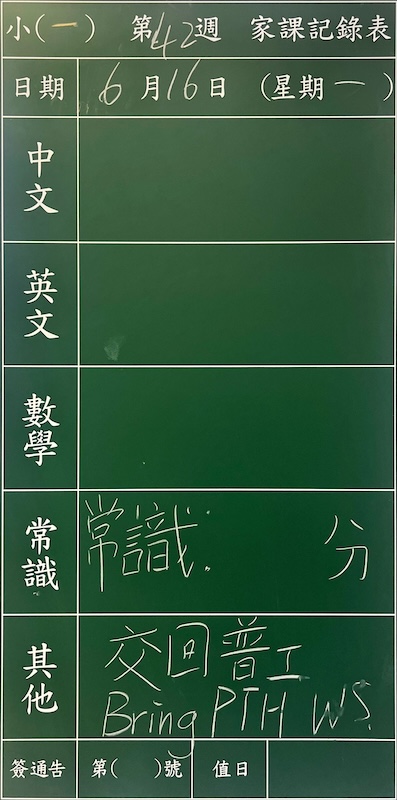 小(一) 第42週 家課記錄表
日期 6月16日 (星期一)
中文
英文
數學
常識 常識: 分
其他 交回普工
Bring PTH WS.
簽通告 第( )號 值日